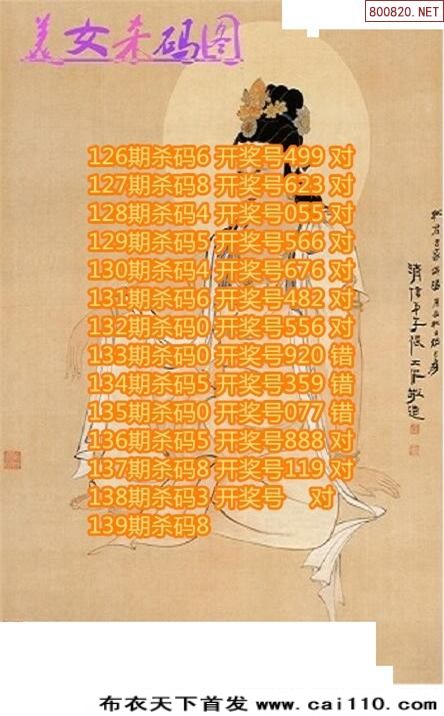 800820.NET
美女杀码图
126期杀码6 开奖号499 对
127期杀码8 开奖号623 对
128期杀码4 开奖号055 对
129期杀码5 开奖号566 对
130期杀码4 开奖号676 对
131期杀码6 开奖号482 对
132期杀码0 开奖号556 对
133期杀码0 开奖号920 错
134期杀码5 开奖号359 错
135期杀码0 开奖号077 错
136期杀码5 开奖号888 对
137期杀码8 开奖号119 对
138期杀码3 开奖号 对
139期杀码8
布衣天下首发 www.cai110.com